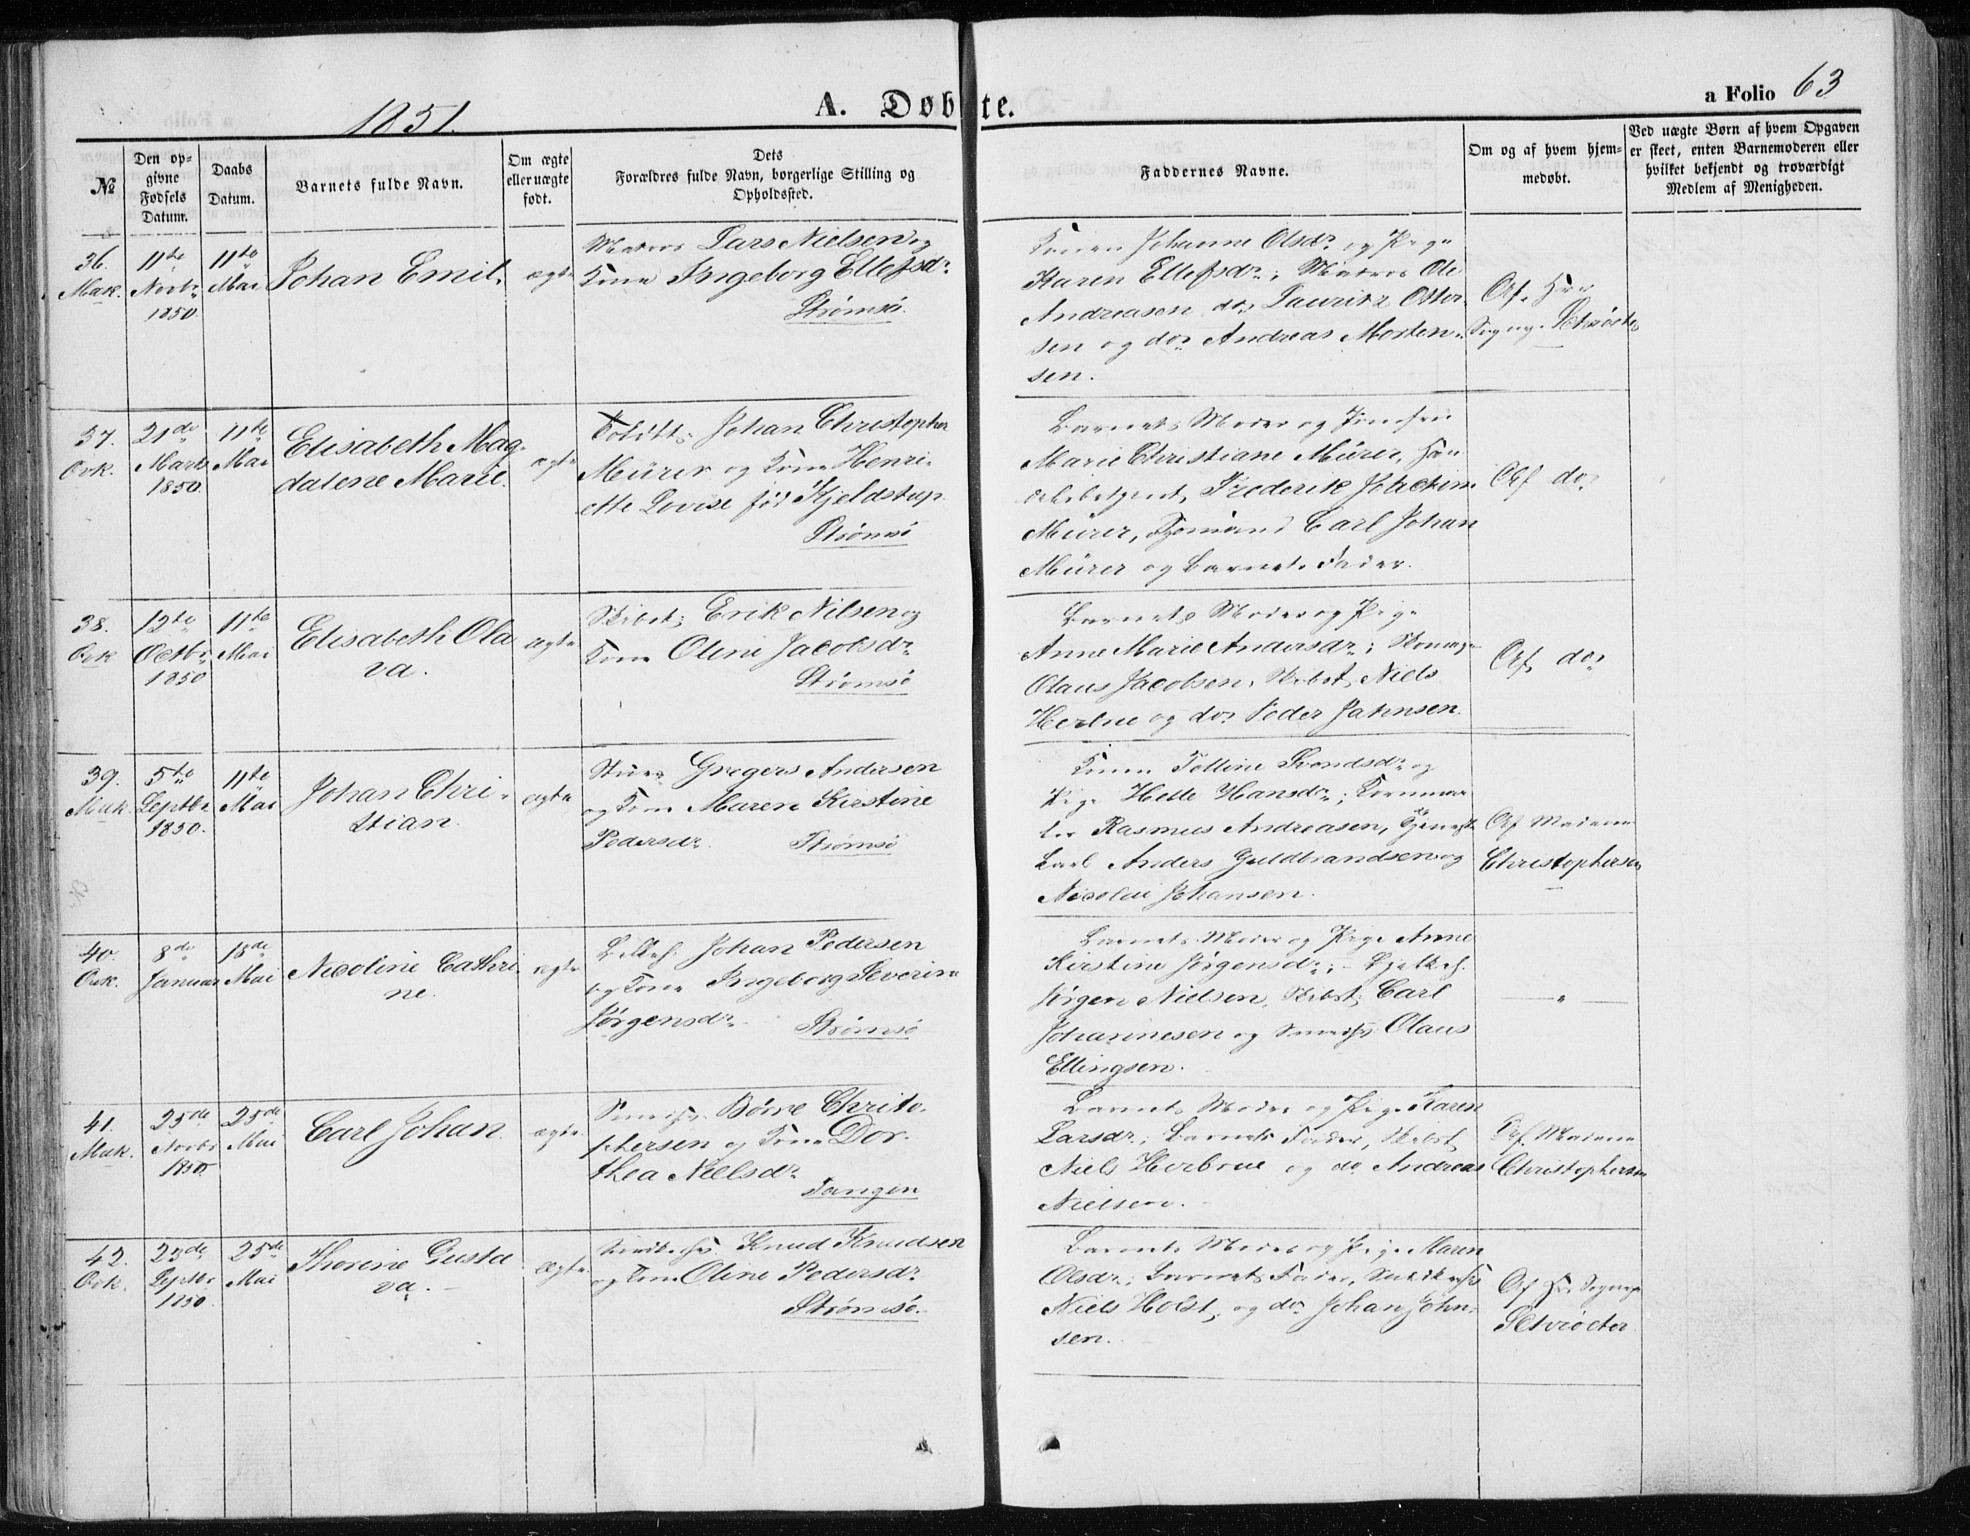 1851.
A. Døbte.
a Folio 63
№
Den opgivne Fødsels Datum.
Daabs Datum.
Barnets fulde Navn.
Om ægte eller uægte født.
Dets Forældres fulde Navn, borgerlige Stilling og Opholdssted.
Faddernes Navne.
Om og af hvem hjemmedøbt.
Ved uægte Børn af hvem Opgaven er skeet, enten Barnemoderen eller hvilket bekjendt og troværdigt Medlem af Menigheden.
36.
11te
11te
Mai
Novbr
1850
Johan Emil.
ægte
Matros Lars Nielsen og
Kone Ingeborg Ellefsdr
Strømsø.
Konen Johanne Olsdr og Pige
Karen Ellefsdr; Matros Ole
Andreasen do, Lauritz Otter
sen og do Andreas Morten-
sen.
Af Hr
Sogn Schrøeter
37.
21de
11te
Marts
Mai
1850
Elisabeth Mag-
dalene Marie.
ægte
Johan Christopher
Mürer og Kone Henri-
ette Lovise fød Kjeldstup
Strømsø
Barnets Moder og Jomfru
Marie Christiane Mürer,
Frederik Joachim
Mürer, Carl Johan
Mürer og Barnets Fader.
Af do
38.
12te
11te
Octbr
Mai
1850
Elisabeth Ola
va.
ægte
Erik Nilsen og
Kone Oline Jacobsdr
Strømsø
Barnets Moder og Pige
Anne Marie Andersdr;
Olaus Jacobsen, Niels
og do Peder Jahnsen.
Af do
39.
5te
11te
Septbr
Mai
1850.
Johan Chri-
stian.
ægte
Gregers Andersen
og Kone Maren Kirstine
Pedersdr.
Strømsø
Konen Svendsdr og
Pige Helle Hansdr;
Rasmus Andreasen,
Anders Guldbrandsen og
Nicolai Johansen.
Af Madame
Christophersen
40.
8de
18de
Januar
Mai
Nicoline Cathri-
ne.
ægte
Johan Pedersen
og Kone Ingeborg Severine
Jørgensdr.
Strømsø
Barnets Moder og Pige Anne
Kirstine Jørgensdr;
Jørgen Nielsen, Carl
Johannesen og Olaus
Ellingsen.
— " —
41.
25de
25de
Novbr
Mai
1850
Carl Johan.
ægte
Børre Christo-
phersen og Kone Dor-
thea Nielsdr
Tangen
Barnets Moder og Pige Karen
Larsdr; Barnets Fader,
Niels og do Andreas
Nielsen.
Af Madame
Christophersen
42.
23de
25de
Septbr
Mai
1850.
Thorine Gusta
va.
ægte
Knud Knudsen
og Kone Oline Pedersdr
Strømsø.
Barnets Moder og Pige Maren
Olsdr; Barnets Fader,
Niels Holst, og do Johan John-
sen.
Af Hr Sognepr
Schrøeter